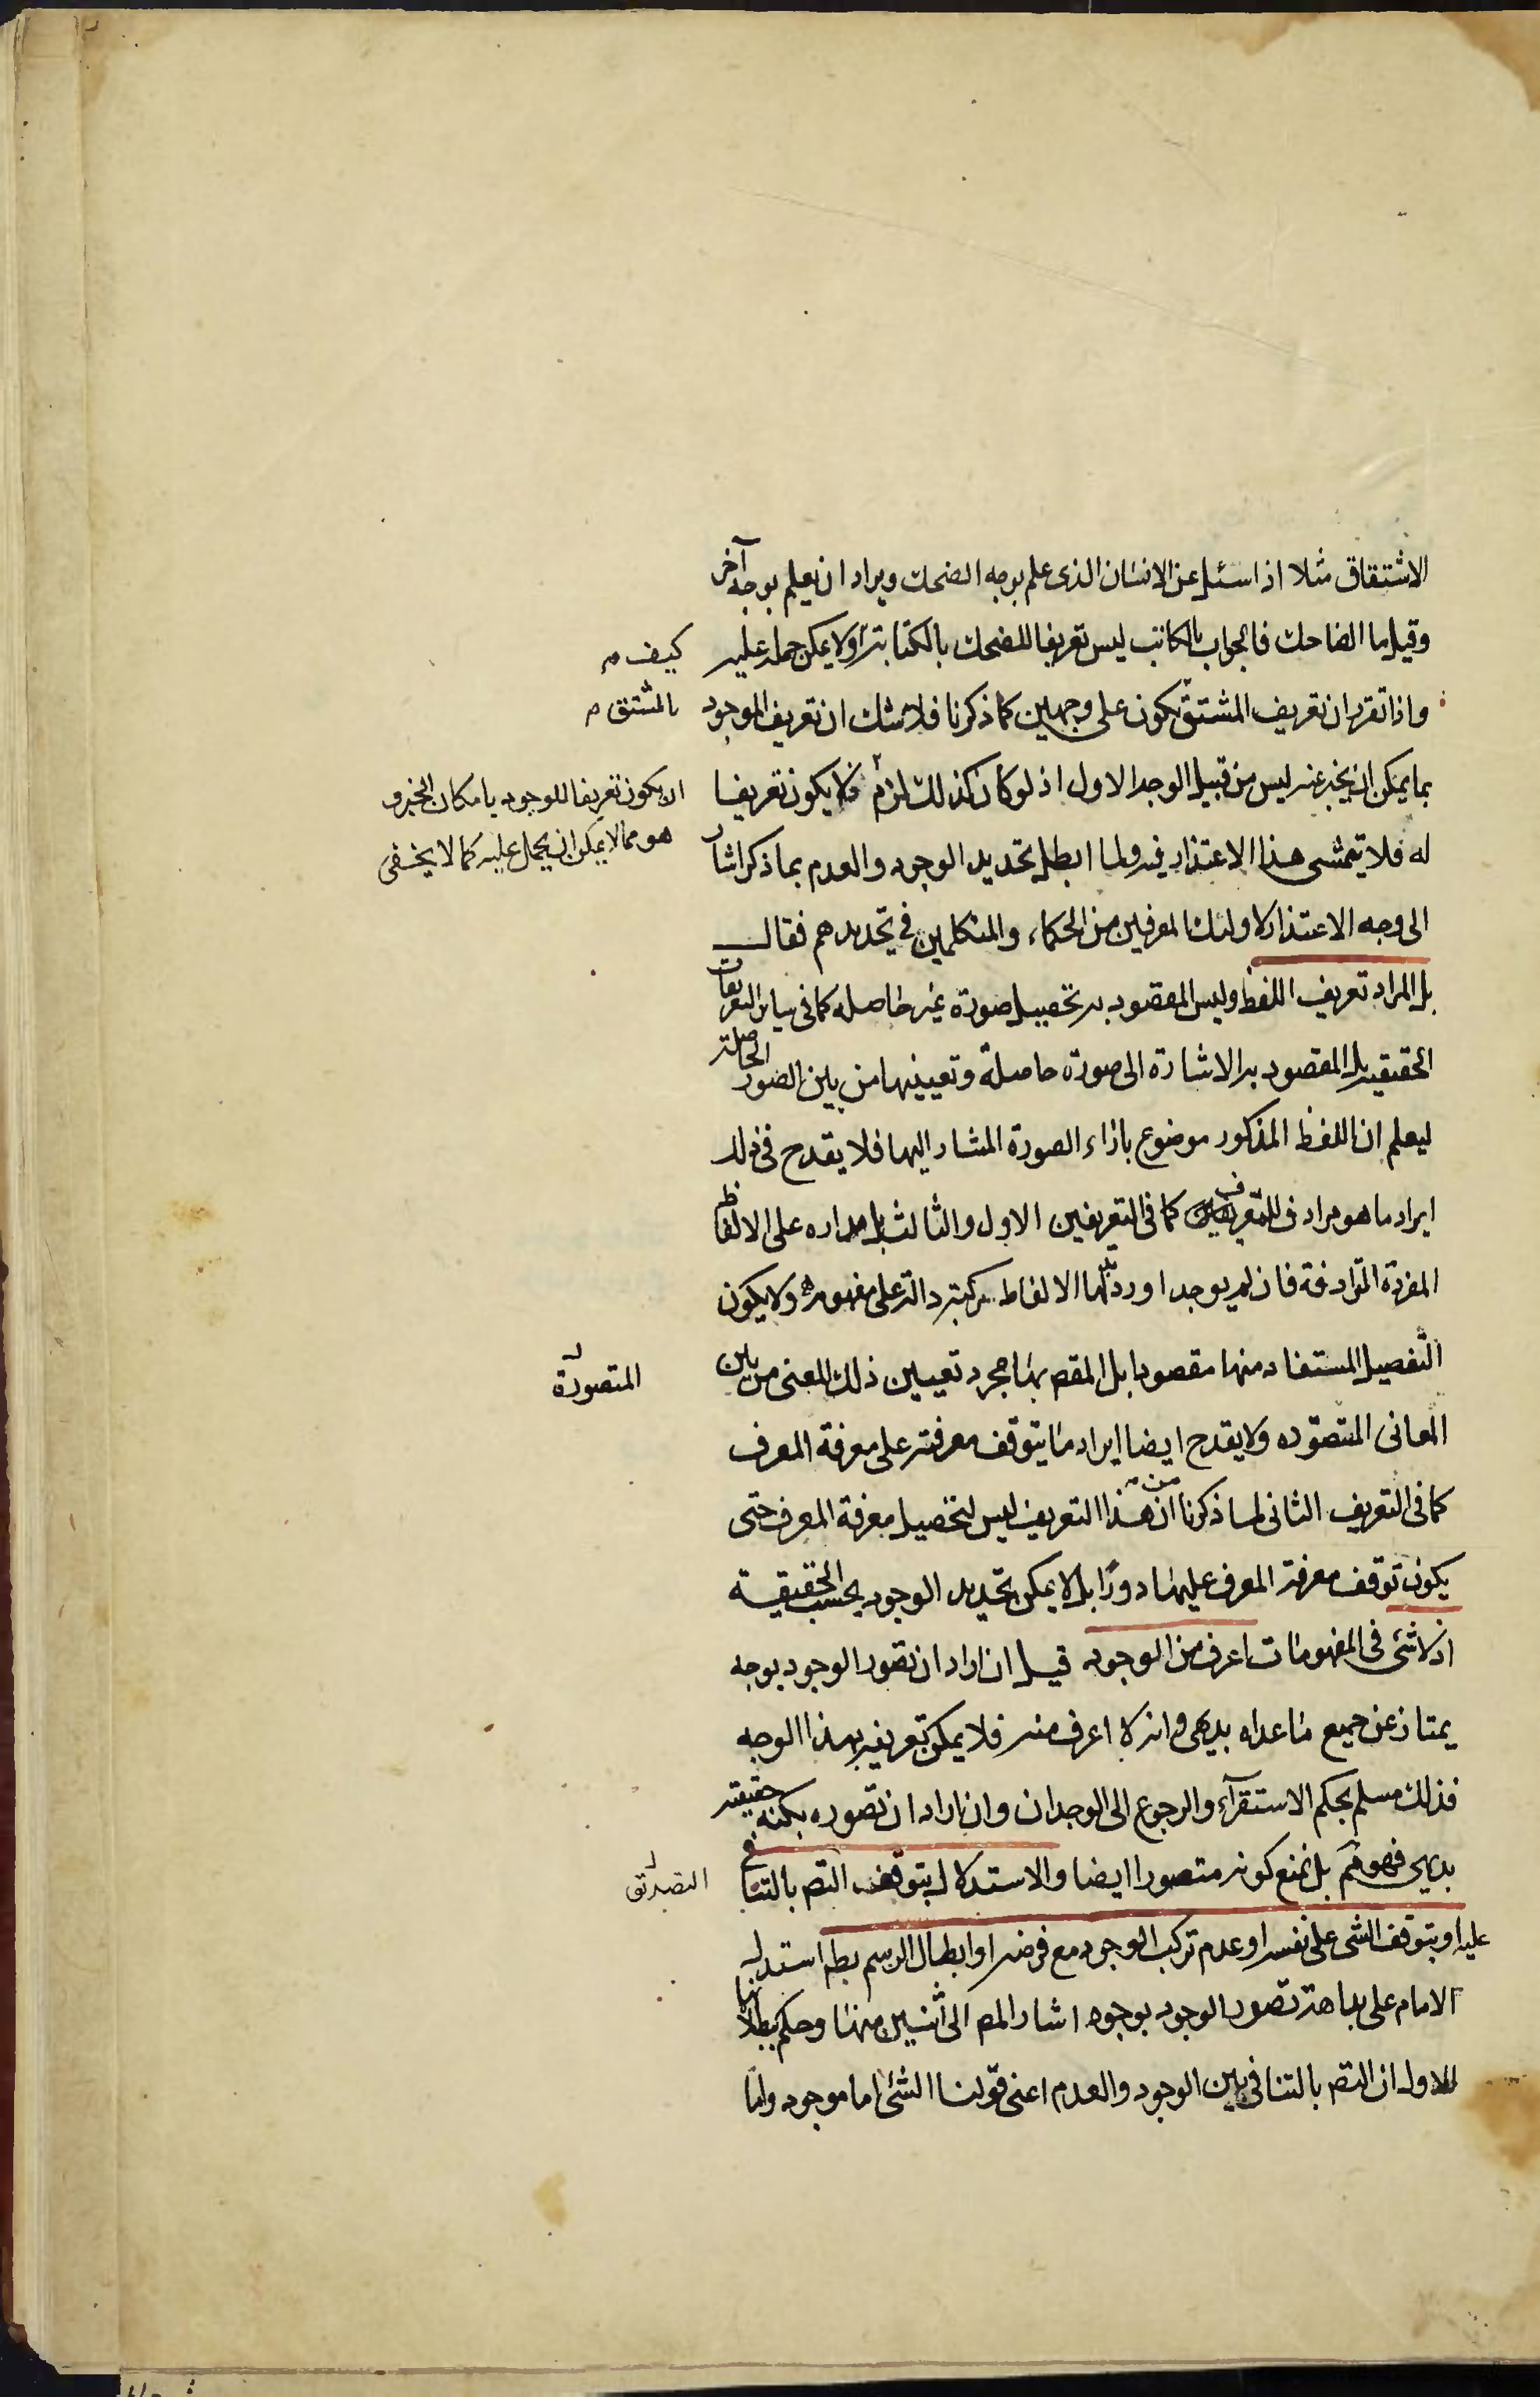 الاشتقاق مثلا اذا سئل عن الانسان الذى علم بوجه الضحك ويراد ان يعلم بوجه آخر
وقيل ما الضاحك فالجواب بالكاتب ليس تعريفا للضحك بالكتابة ولا يمكن حمله عليه
كيف م
واذا تقرر ان تعريف المشتق يكون على وجهين كما ذكرنا فلا شك ان تعريف الموجود
بالمشتق م
بما يمكن ان يخبر عنه ليس من قبيل الوجه الاول اذ لو كان كذلك لزم فلا يكون تعريفا
ان يكون تعريفا للوجود بامكان الخبر و
هو مما لا يمكن ان يحمل عليه كما لا يخفى
له فلا يتمشى هذا الاعتذار فيه ولما ابطل تحديد الوجود والعدم بما ذكر اشار
الى وجه الاعتذار لاولئك المعرفين من الحكماء والمتكلمين فى تحديدهم فقال
بل المراد تعريف اللفظ وليس المقصود به تحصيل صورة غير حاصله كما فى ساير التعريفات
الحقيقيه بل المقصود به الاشارة الى صورة حاصلة وتعيينها من بين الصور الحاصلة
ليعلم ان اللفظ المذكور موضوع بازاء الصورة المشار اليها فلا يقدح فى ذلك
ايراد ما هو مرادف للمعرف كما فى التعريفين الاول والثالث بل مداره على الالفاظ
المفردة المترادفة فان لم يوجد اورد بدلها الالفاظ مركبة دالة على مفهومه ولا يكون
التفصيل المستفاد منها مقصودا بل المقصـ بها مجرد تعيين ذلك المعنى من بين
المتصورة
المعانى المتصوره ولا يقدح ايضا ايراد ما يتوقف معرفته على معرفة المعرف
كما فى التعريف الثانى لما ذكرنا من ان هذا التعريف ليس لتحصيل معرفة المعرف حتى
يكون توقف معرفة المعرف عليها دورا بل لا يمكن تحديد الوجود بحسب الحقيقية
اذ لا شئ فى المفهومات اعرف من الوجود قيل ان اراد ان تصور الوجود بوجه
يمتاز عن جميع ما عداه بديهى وانه لا اعرف منه فلا يمكن تعريفه بهذا الوجه
فذلك مسلم بحكم الاستقرآء والرجوع الى الوجدان وان اراد ان تصوره بكنه حقيقته
بديهى فهو مم بل نمنع كونه متصورا ايضا والاستدلال بتوقف التصـ بالتنافى
التصديق
عليه او بتوقف الشى على نفسه او عدم تركب الوجود مع فرضه او ابطال الرسم بط استدل
الامام على بداهة تصور الوجود بوجوه اشار المصـ الى اثنين منها وحكم ببطلانها
الاول ان التصـ بالتنافى بين الوجود والعدم اعنى قولنا الشئ اما موجود واما